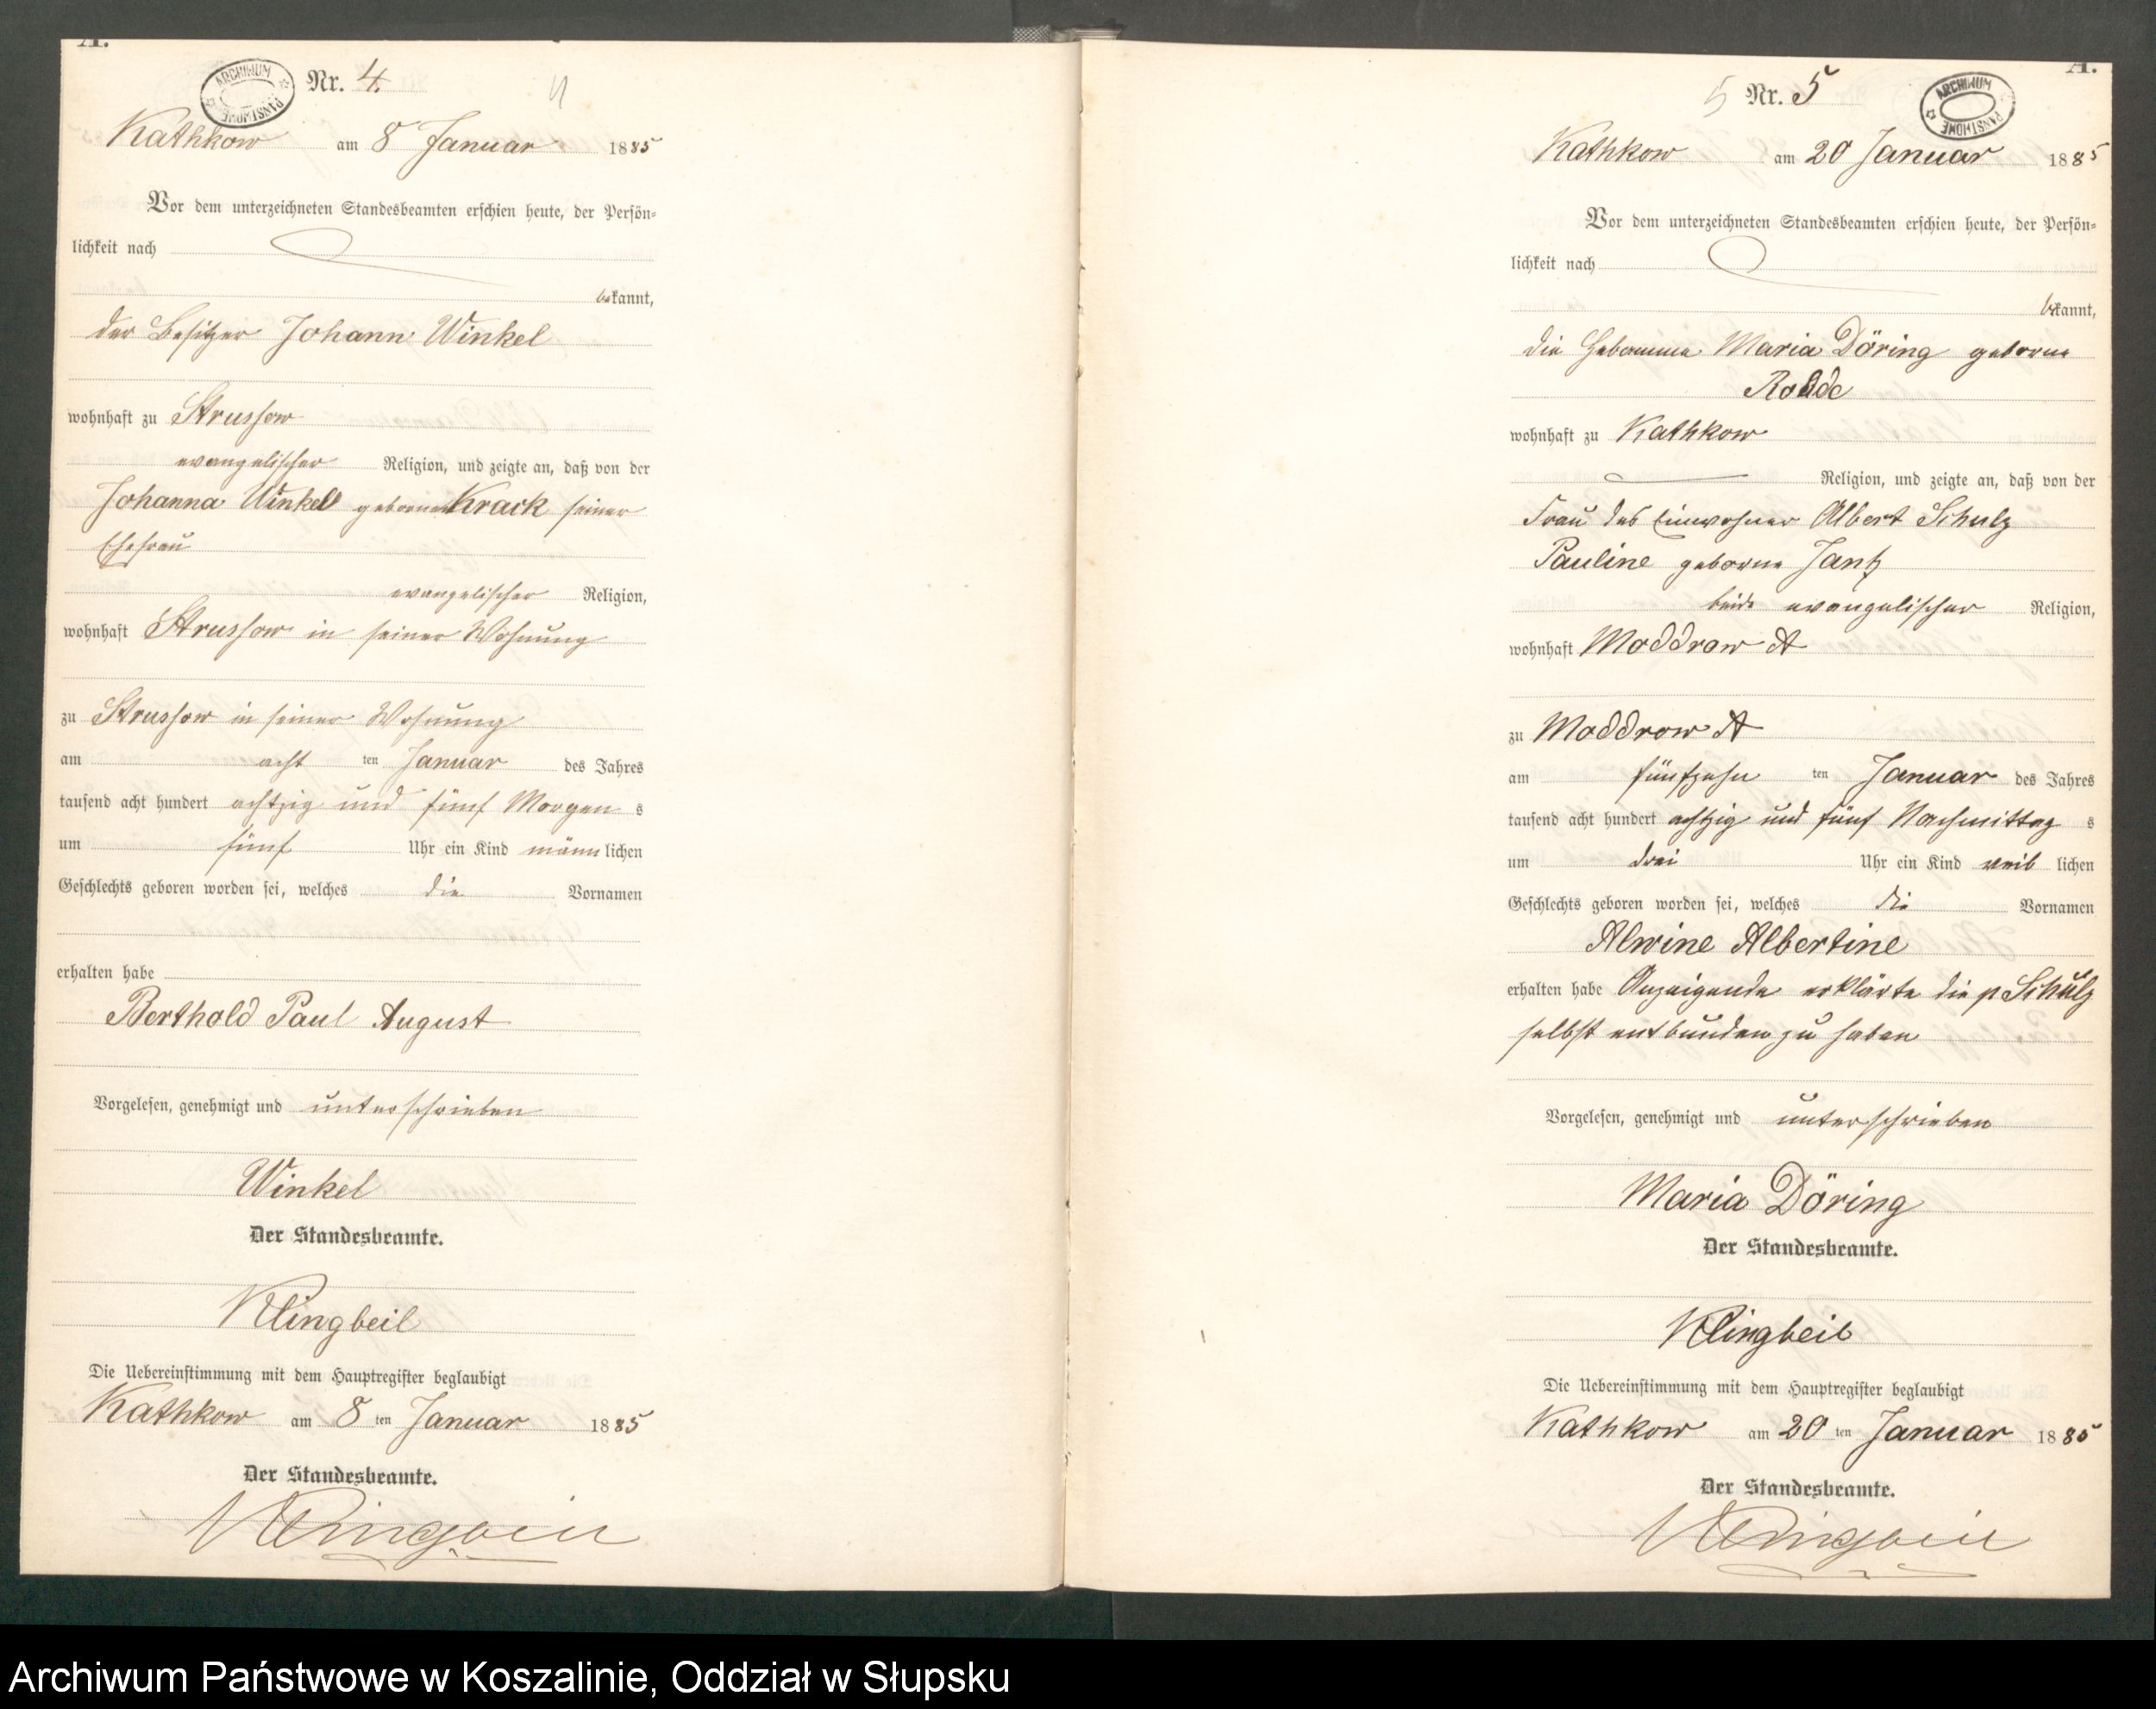 A.
ARCHIWUM PAŃSTWOWE
Nr. 4.
4
Kathkow am 8 Januar 1885
Vor dem unterzeichneten Standesbeamten erschien heute, der Persön-
lichkeit nach
bekannt,
der Besitzer Johann Winkel
wohnhaft zu Strussow
evangelischer Religion, und zeigte an, daß von der
Johanna Winkel geborne Krack seiner
Ehefrau
evangelischer Religion,
wohnhaft Strussow in seiner Wohnung
zu Strussow in seiner Wohnung
am acht ten Januar des Jahres
tausend acht hundert achtzig und fünf Morgen s
um fünf Uhr ein Kind männlichen
Geschlechts geboren worden sei, welches die Vornamen
erhalten habe
Berthold Paul August
Vorgelesen, genehmigt und unterschrieben
Winkel
Der Standesbeamte.
Klingbeil
Die Uebereinstimmung mit dem Hauptregister beglaubigt
Kathkow am 8 ten Januar 1885
Der Standesbeamte.
Klingbeil
A.
5 Nr. 5
ARCHIWUM PAŃSTWOWE
Kathkow am 20 Januar 1885
Vor dem unterzeichneten Standesbeamten erschien heute, der Persön-
lichkeit nach
bekannt,
die Hebamme Maria Döring geborne
Rohde
wohnhaft zu Kathkow
Religion, und zeigte an, daß von der
Frau des Einwohner Albert Schulz
Pauline geborne Jantz
beide evangelischer Religion,
wohnhaft Moddrow A
zu Moddrow A
am fünfzehn ten Januar des Jahres
tausend acht hundert achtzig und fünf Nachmittag s
um drei Uhr ein Kind weib lichen
Geschlechts geboren worden sei, welches die Vornamen
Alwine Albertine
erhalten habe Anzeigende erklärte die p Schulz
selbst entbunden zu haben
Vorgelesen, genehmigt und unterschrieben
Maria Döring
Der Standesbeamte.
Klingbeil
Die Uebereinstimmung mit dem Hauptregister beglaubigt
Kathkow am 20 ten Januar 1885
Der Standesbeamte.
Klingbeil
Archiwum Państwowe w Koszalinie, Oddział w Słupsku